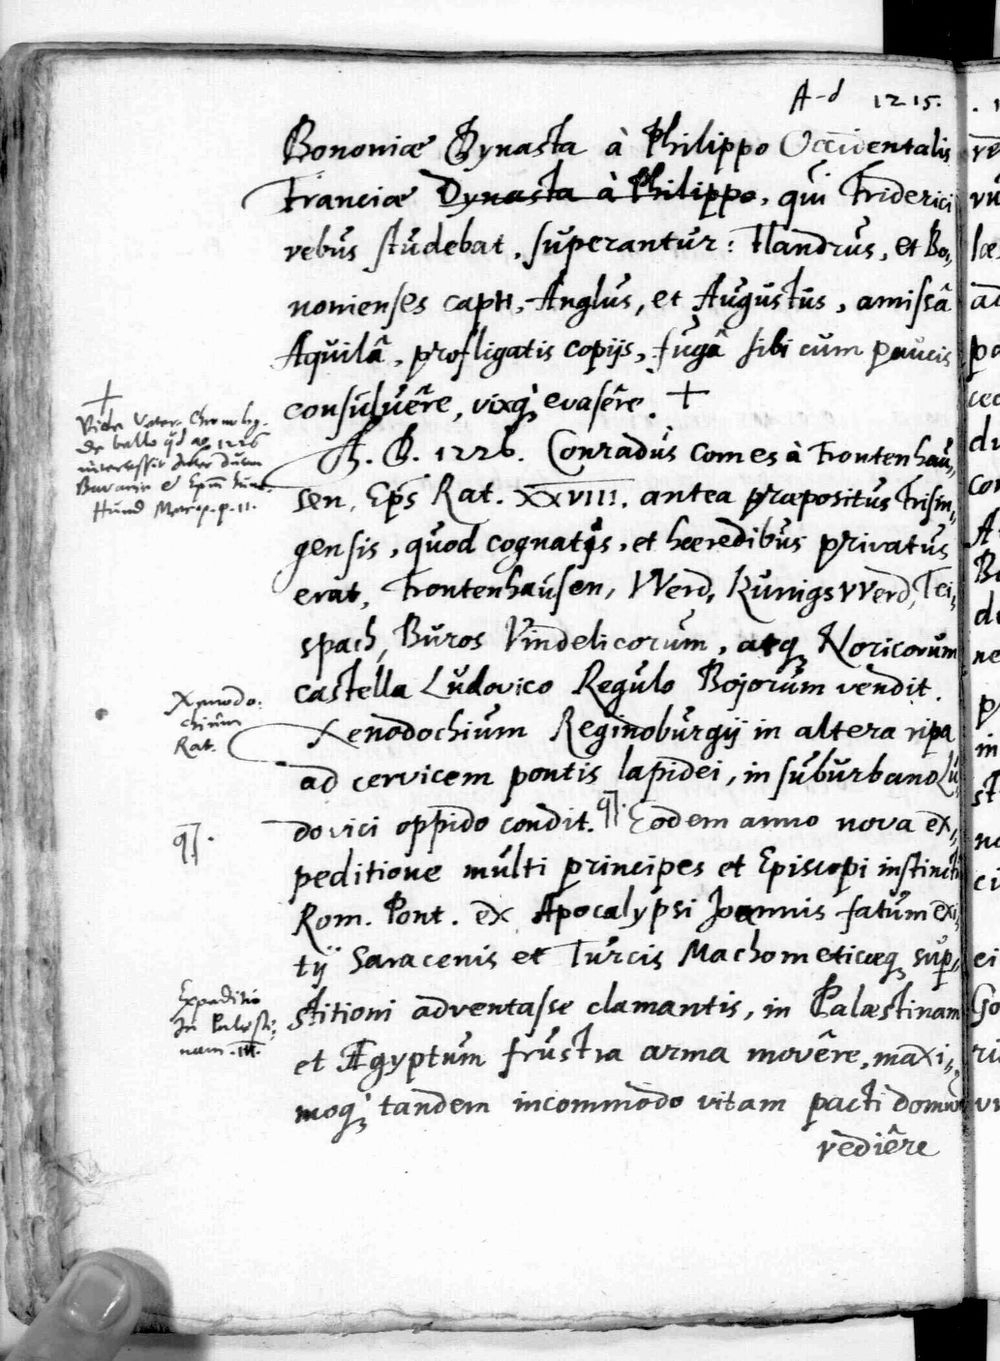 A-d 1215.
Bononiæ Dynasta à Philippo Occidentalis
Franciæ Dynasta à Philippo, qui Friderici
rebus studebat, superantur: Flandrus, et Bo„
nonienses capti, Anglus, et Augustus, amissâ
Aquilâ, profligatis copijs, fugâ sibi cum paucis
consuluêre, vixq; evasêre. +
+
Vide Veter. Chronolog.
de bello qd aō 1226
intercessit inter Ducem
Bavariæ & Epm̄
Hund Metrop. p. 11.
A. D. 1226. Conradus Comes à Frontenhau„
sen, Eps Rat. XXVIII. antea præpositus Frisin„
gensis, quod cognatis, et hæredibus privatus
erat, Frontenhausen, Werd, Kunigswerd, Tei„
spach, Buros Vindelicorum, atq; Noricorum
castella Ludovico Regulo Bojorum vendit.
Xenodo:
chium
Rat.
Xenodochium Reginoburgij in altera ripa
ad cervicem pontis lapidei, in suburbano Lu„
dovici oppido condit. Eodem anno nova ex„
peditione multi principes et Episcopi instinctu
Rom. Pont. ex Apocalypsi Joannis fatum exi„
tij Saracenis et Turcis Machometicæq; sup„
Expeditio
In Palæsti:
nam. III.
stitioni adventasse clamantis, in Palæstinam
et Ægyptum frustra arma movêre, maxi„
moq; tandem incommodo vitam pacti domum
rediêre